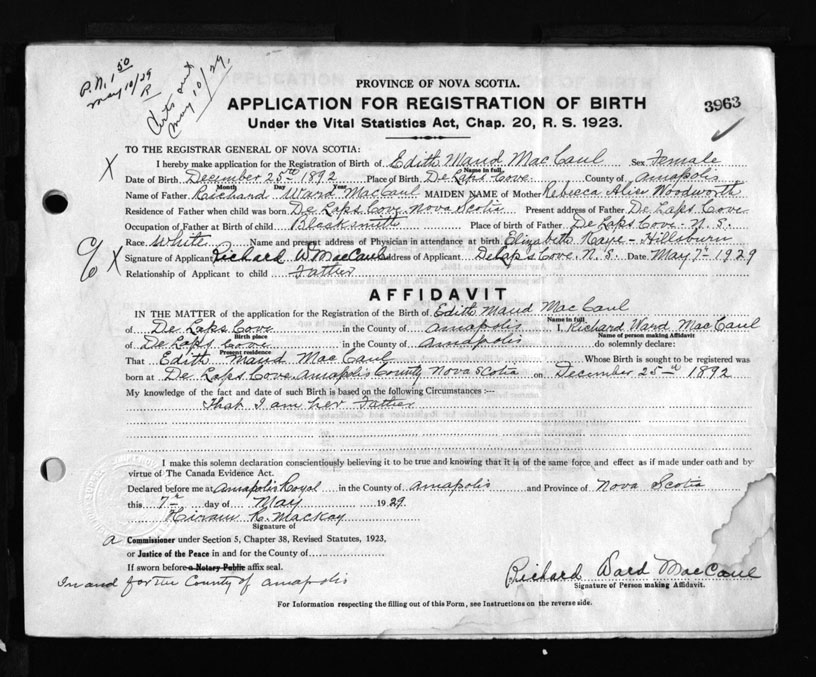 P.N. 1 50
May 10/29
R
Certs sent
May 10/29.
PROVINCE OF NOVA SCOTIA.
APPLICATION FOR REGISTRATION OF BIRTH
3963
Under the Vital Statistics Act, Chap. 20, R. S. 1923.
TO THE REGISTRAR GENERAL OF NOVA SCOTIA:
X I hereby make application for the Registration of Birth of Edith Maud MacCaul Sex Female
Name in full
Date of Birth December 25th 1892 Place of Birth De Laps Cove County of Annapolis
Month Day Year
Name of Father Richard Ward MacCaul MAIDEN NAME of Mother Rebecca Alise Woodworth
Residence of Father when child was born De Laps Cove Nova Scotia Present address of Father De Laps Cove
Occupation of Father at Birth of child Blacksmith Place of birth of Father De Laps Cove. N.S.
Race White Name and present address of Physician in attendance at birth Elizabeth Kaye - Hillsburn
X Signature of Applicant Richard W MacCaul Address of Applicant De Laps Cove. N.S. Date May 7th 1929
Relationship of Applicant to child Father
AFFIDAVIT
IN THE MATTER of the application for the Registration of the Birth of Edith Maud MacCaul
Name in full
of De Laps Cove in the County of Annapolis I, Richard Ward MacCaul
Birth place Name of person making Affidavit
of De Laps Cove in the County of Annapolis do solemnly declare:
Present residence
That Edith Maud MacCaul Whose Birth is sought to be registered was
born at De Laps Cove Annapolis County Nova Scotia on December 25th 1892
My knowledge of the fact and date of such Birth is based on the following Circumstances :—
That I am her Father
I make this solemn declaration conscientiously believing it to be true and knowing that it is of the same force and effect as if made under oath and by
virtue of The Canada Evidence Act.
Declared before me at Annapolis Royal in the County of Annapolis and Province of Nova Scotia
this 7th day of May 1929
Hiram R. MacKay
Signature of
a Commissioner under Section 5, Chapter 38, Revised Statutes, 1923,
or Justice of the Peace in and for the County of
If sworn before a Notary Public affix seal.
In and for the County of Annapolis
Richard Ward MacCaul
Signature of Person making Affidavit.
For Information respecting the filling out of this Form, see Instructions on the reverse side.